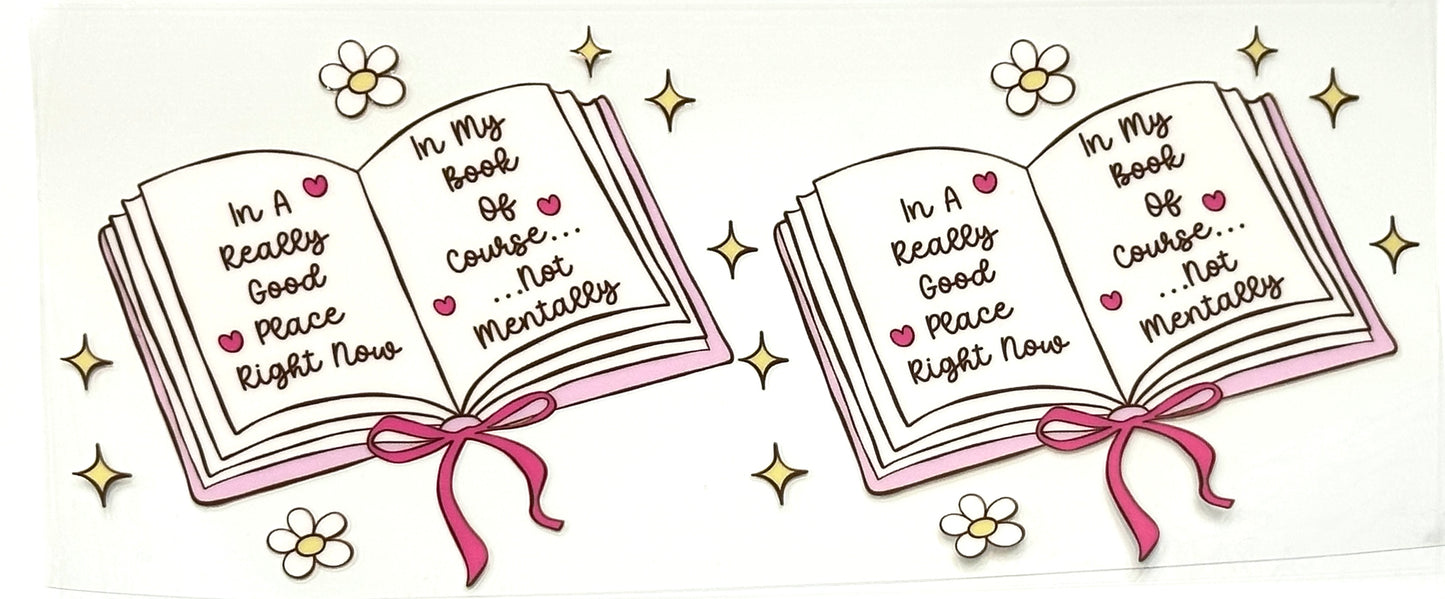 In A
Really
Good
Place
Right Now
In My
Book
Of
Course...
...Not
Mentally
In A
Really
Good
Place
Right Now
In My
Book
Of
Course...
...Not
Mentally